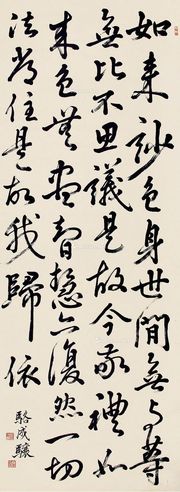 如来妙色身世間無与等
無比不思議是故今敬禮如
来色無盡智慧亦復然一切
法常住是故我歸依
駱成驤